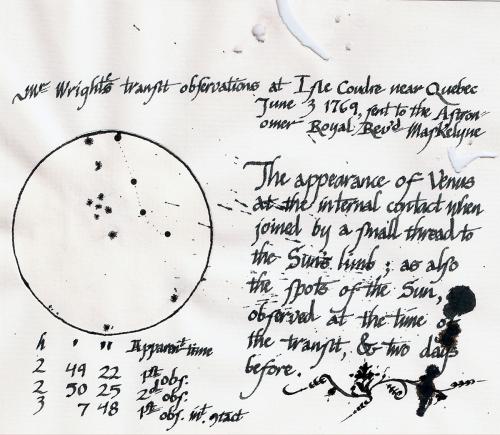 Mr Wright's tranſit obſervations at Iſle Coudre near Quebec
June 3 1769, ſent to the Aſtron-
omer Royal Revd Maſkelyne
The appearance of Venus
at the internal contact when
joined by a ſmall thread to
the Sun's limb; as alſo
the ſpots of the Sun,
obſerved at the time of
the tranſit, & two days
before.
h ' " Apparent time
2 49 22 1st obſ.
2 50 25 2nd obſ.
3 7 48 1st obſ. int.